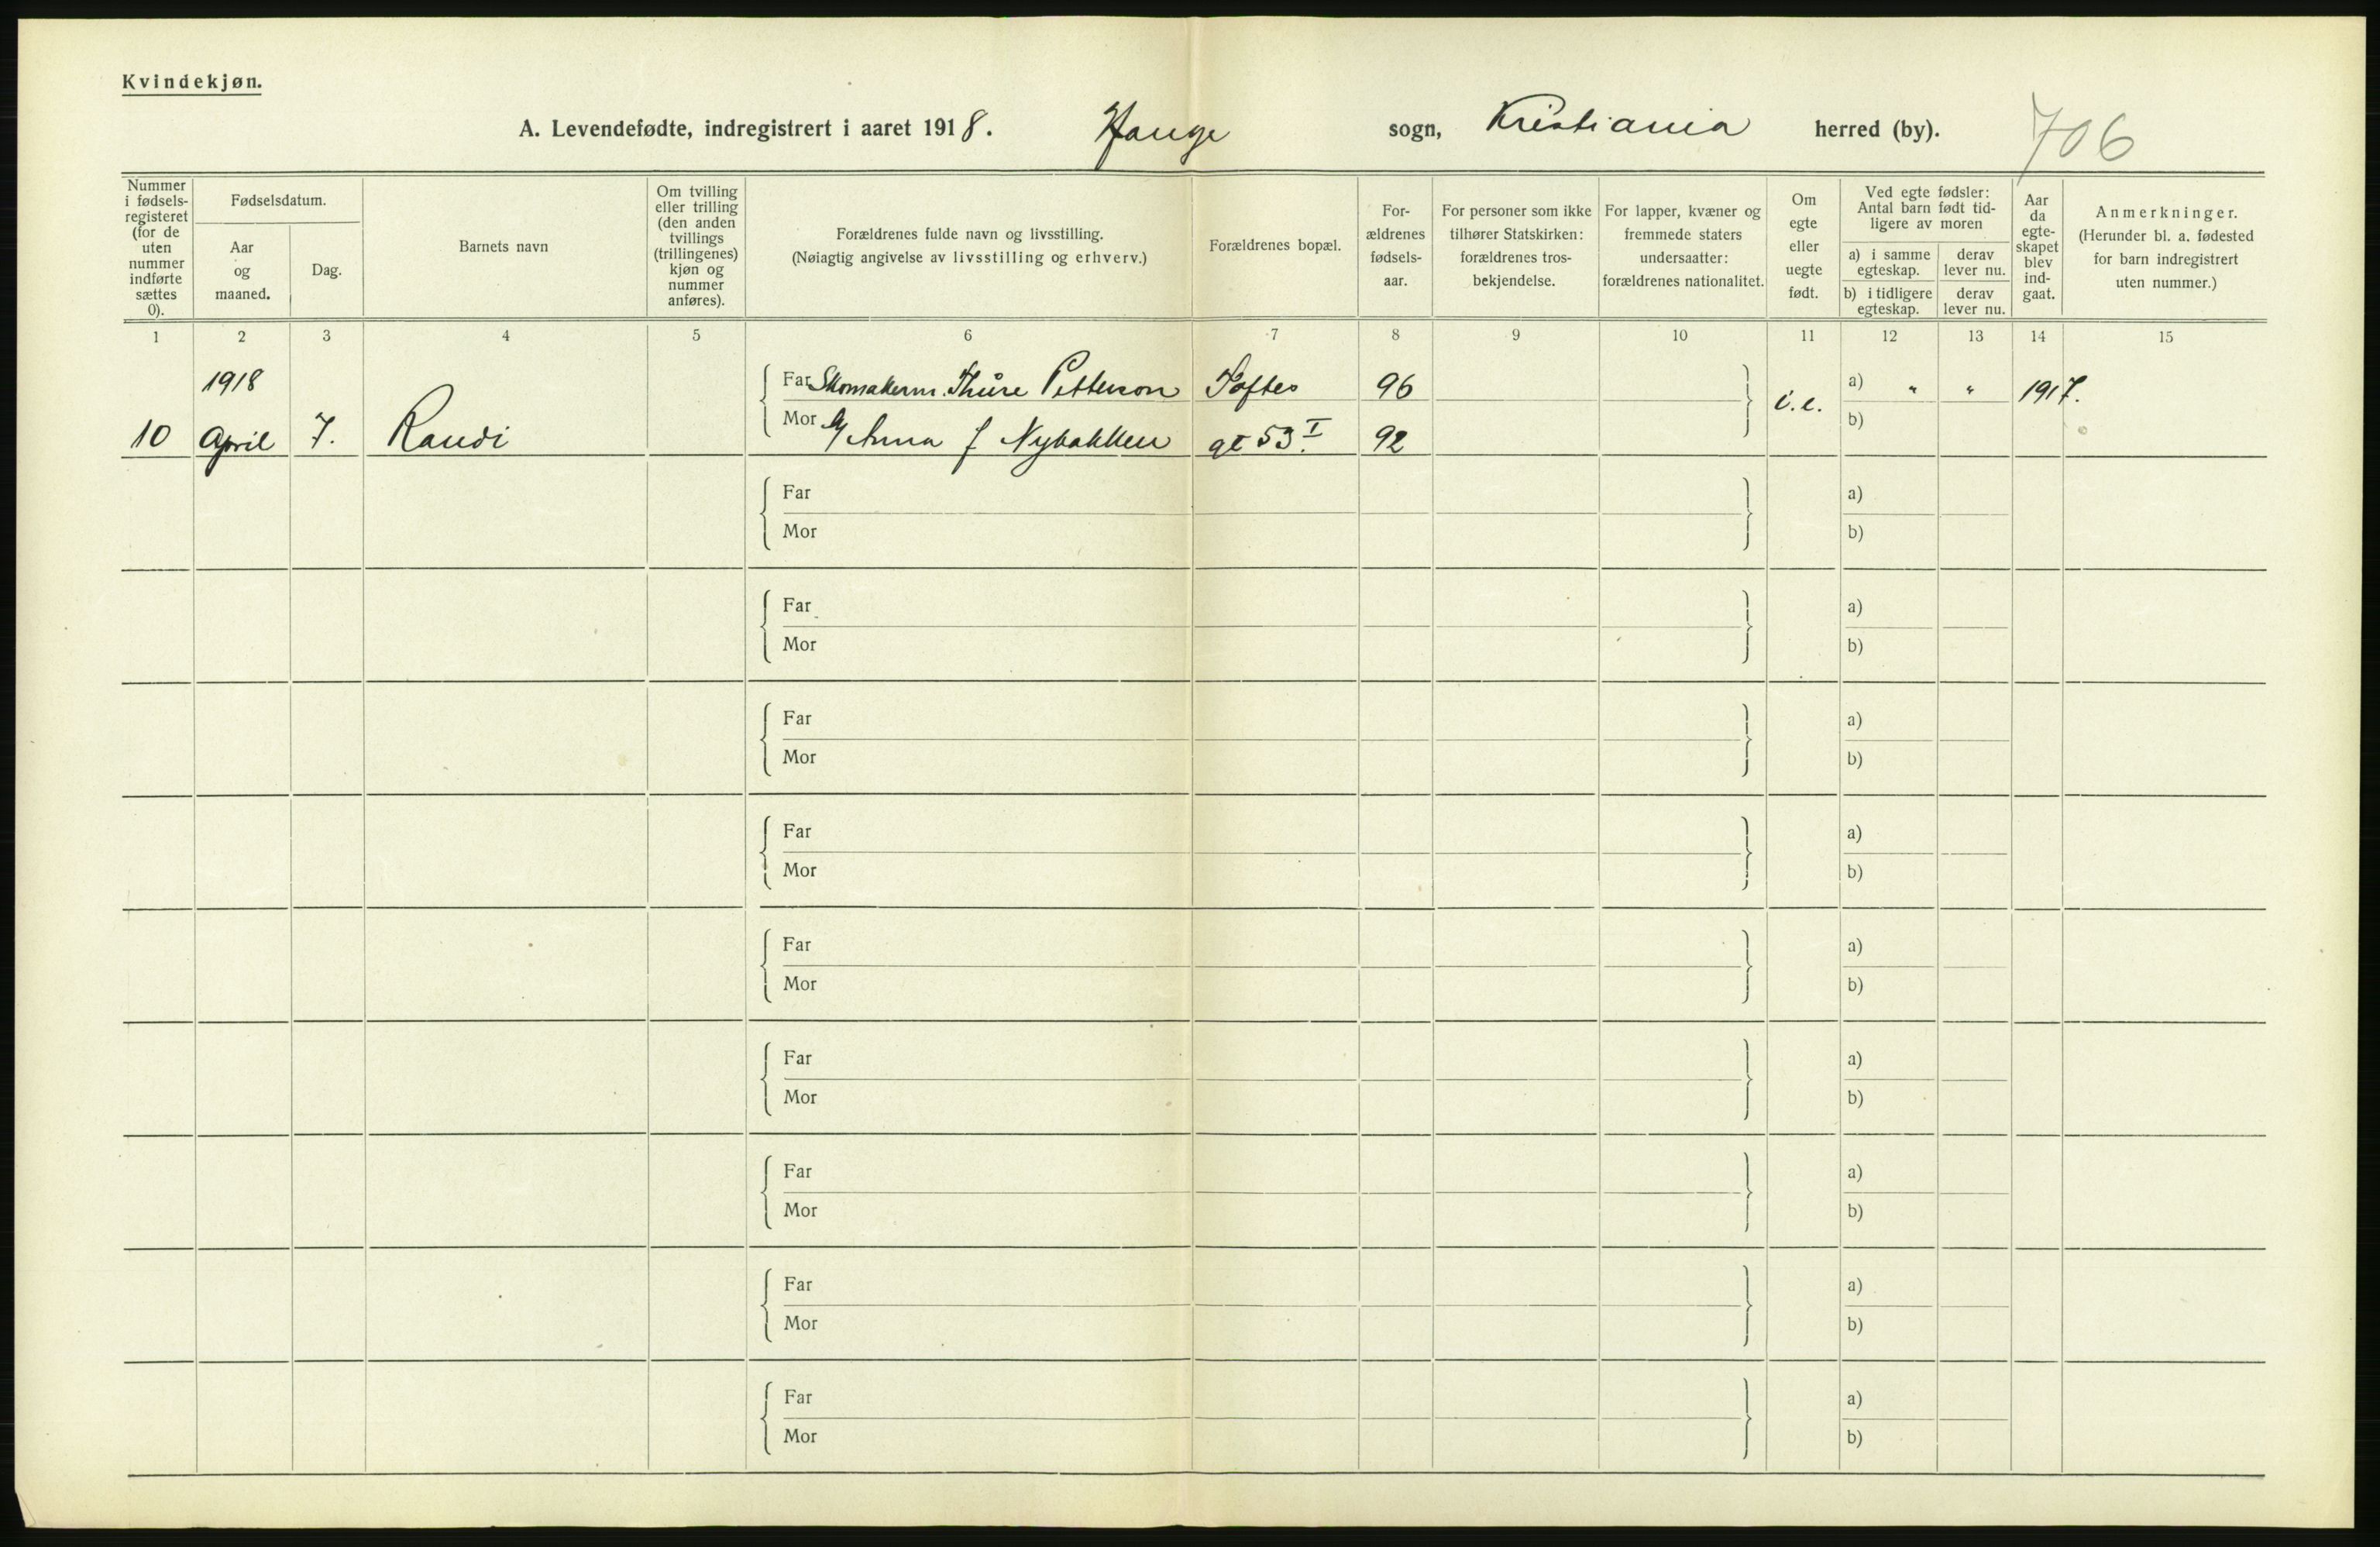 Kvindekjøn.
A. Levendefødte, indregistrert i aaret 1918. Hauge sogn, Kristiania herred (by). 706
Nummer i fødsels-registeret (for de uten nummer indførte sættes 0).
Fødselsdatum.
Aar og maaned.
Dag.
Barnets navn
Om tvilling eller trilling (den anden tvillings (trillingenes) kjøn og nummer anføres).
Forældrenes fulde navn og livsstilling.
(Nøiagtig angivelse av livsstilling og erhverv.)
Forældrenes bopæl.
For-ældrenes fødsels-aar.
For personer som ikke tilhører Statskirken: forældrenes tros-bekjendelse.
For lapper, kvæner og fremmede staters undersaatter: forældrenes nationalitet.
Om egte eller uegte født.
Ved egte fødsler: Antal barn født tid-ligere av moren
a) i samme egteskap.
derav lever nu.
b) i tidligere egteskap.
derav lever nu.
Aar da egte-skapet blev ind-gaat.
Anmerkninger.
(Herunder bl. a. fødested for barn indregistrert uten nummer.)
1 2 3 4 5 6 7 8 9 10 11 12 13 14 15
1918 Far Skomakerm. Thure Petterson Toftes 96 a) " " 1917.
i.e.
10 April 7. Randi Mor Anna f Nybakken gt 53 I. 92 b)
Far a)
Mor b)
Far a)
Mor b)
Far a)
Mor b)
Far a)
Mor b)
Far a)
Mor b)
Far a)
Mor b)
Far a)
Mor b)
Far a)
Mor b)
Far a)
Mor b)